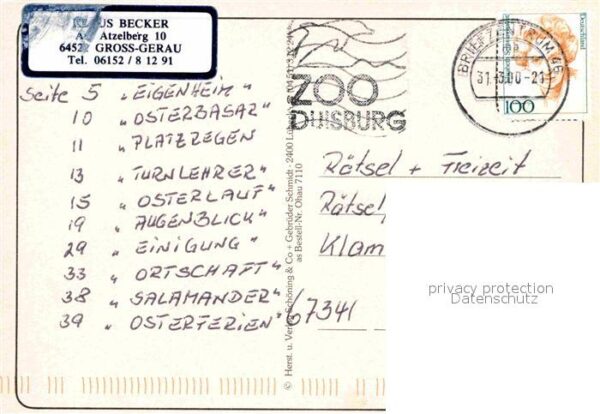 US BECKER
Atzelberg 10
GROSS-GERAU
Tel. 06152 / 8 12 91
Seite 5 "EIGENHEIM"
10 "OSTERBASAR"
11 "PLATZREGEN
13 "TURNLEHRER"
15 "OSTERLAUF"
19 "AUGENBLICK"
29 "EINIGUNG"
33 "ORTSCHAFT"
38 "SALAMANDER"
39 "OSTERFERIEN"
ZOO
DUISBURG
BRIEFZENTRUM 46
31.-3.00-21
Deutschland
100
Rätsel + Freizeit
Rätsel
Klam
67341
© Herst. u. Verlag Schöning & Co + Gebrüder Schmidt · 2400 Lübeck
as Bestell-Nr. Ohau 7110
privacy protection
Datenschutz